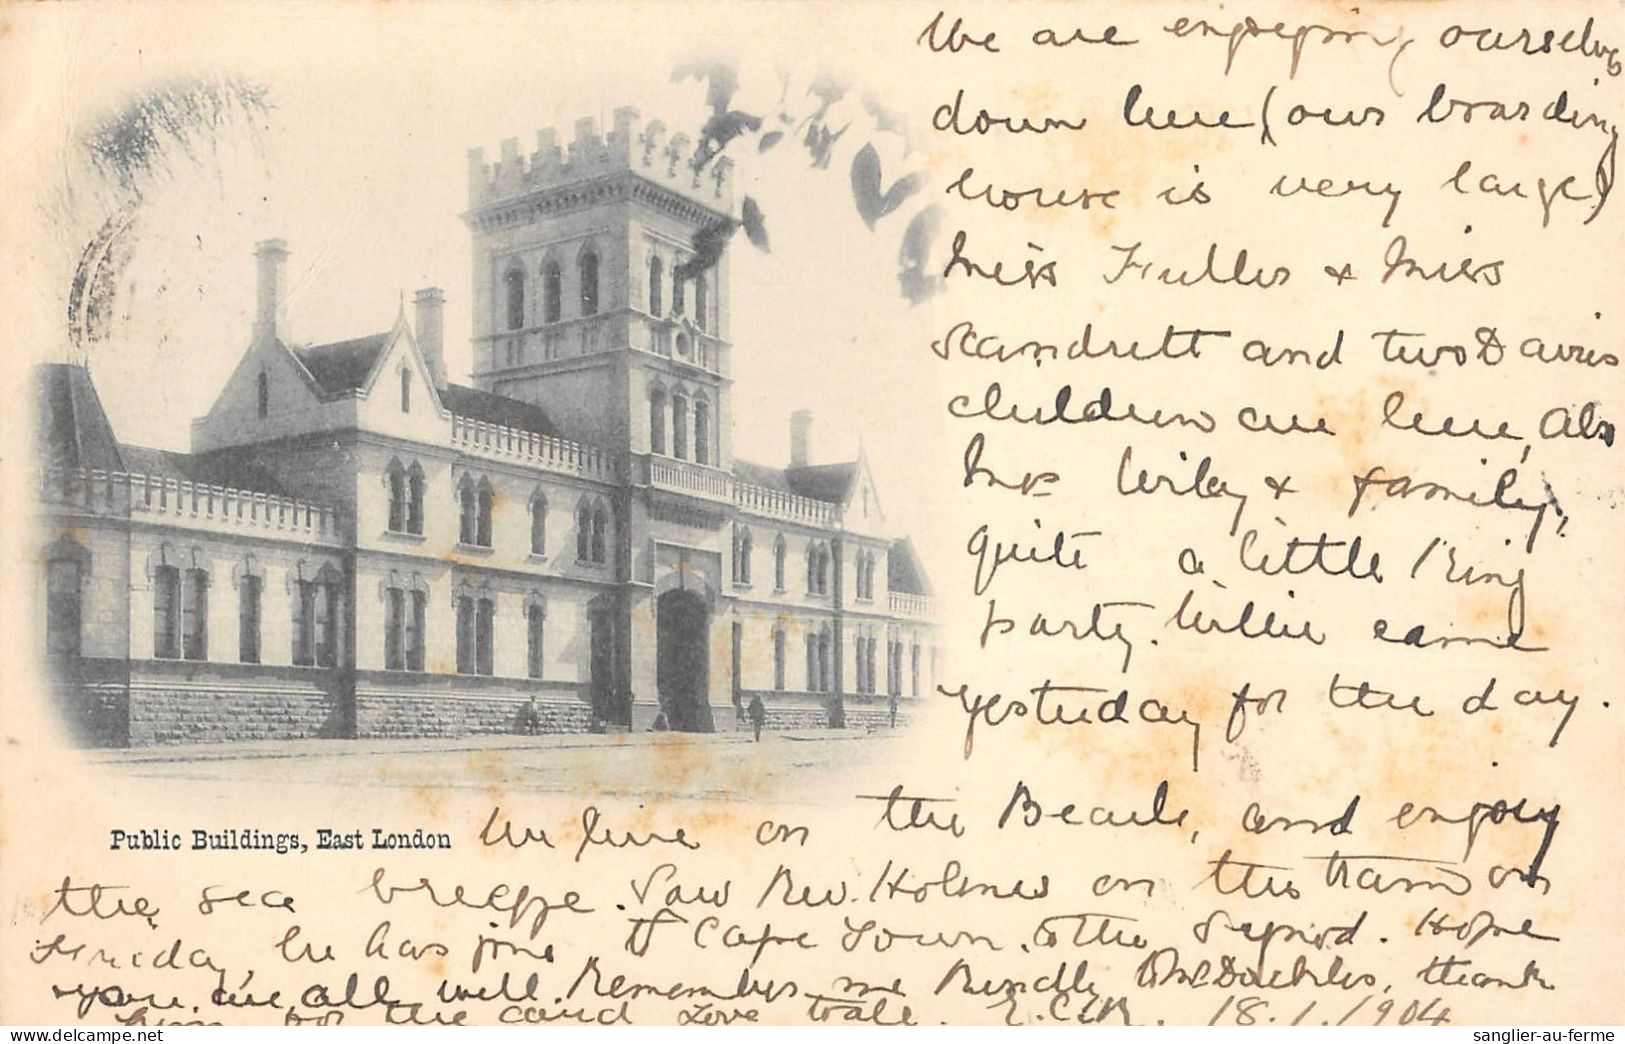 We are enjoying ourselves
down here (our boarding
house is very large)
Miss Fuller & Miss
Scandrett and two Davies
children are here, Also
Mrs Wiley & family,
quite a little King
party. Willie came
yesterday for the day.
We live on the Beach, and enjoy
Public Buildings, East London
the sea breeze. Saw Rev. Holmes on the tram on
Friday, he has gone to Cape Town to the Synod. Hope
you are all well. Remember me kindly to thank
him for the card Love to all. 18.1.1904
sanglier-au-ferme